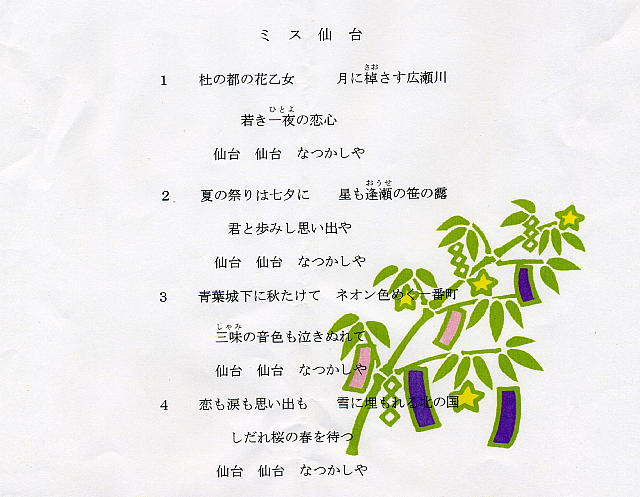 ミス仙台
1 杜の都の花乙女 月に棹さす広瀬川
さお
若き一夜の恋心
ひとよ
仙台 仙台 なつかしや
2 夏の祭りは七夕に 星も逢瀬の笹の露
おうせ
君と歩みし思い出や
仙台 仙台 なつかしや
3 青葉城下に秋たけて ネオン色めく一番町
三味の音色も泣きぬれて
しゃみ
仙台 仙台 なつかしや
4 恋も涙も思い出も 雪に埋もれる北の国
しだれ桜の春を待つ
仙台 仙台 なつかしや